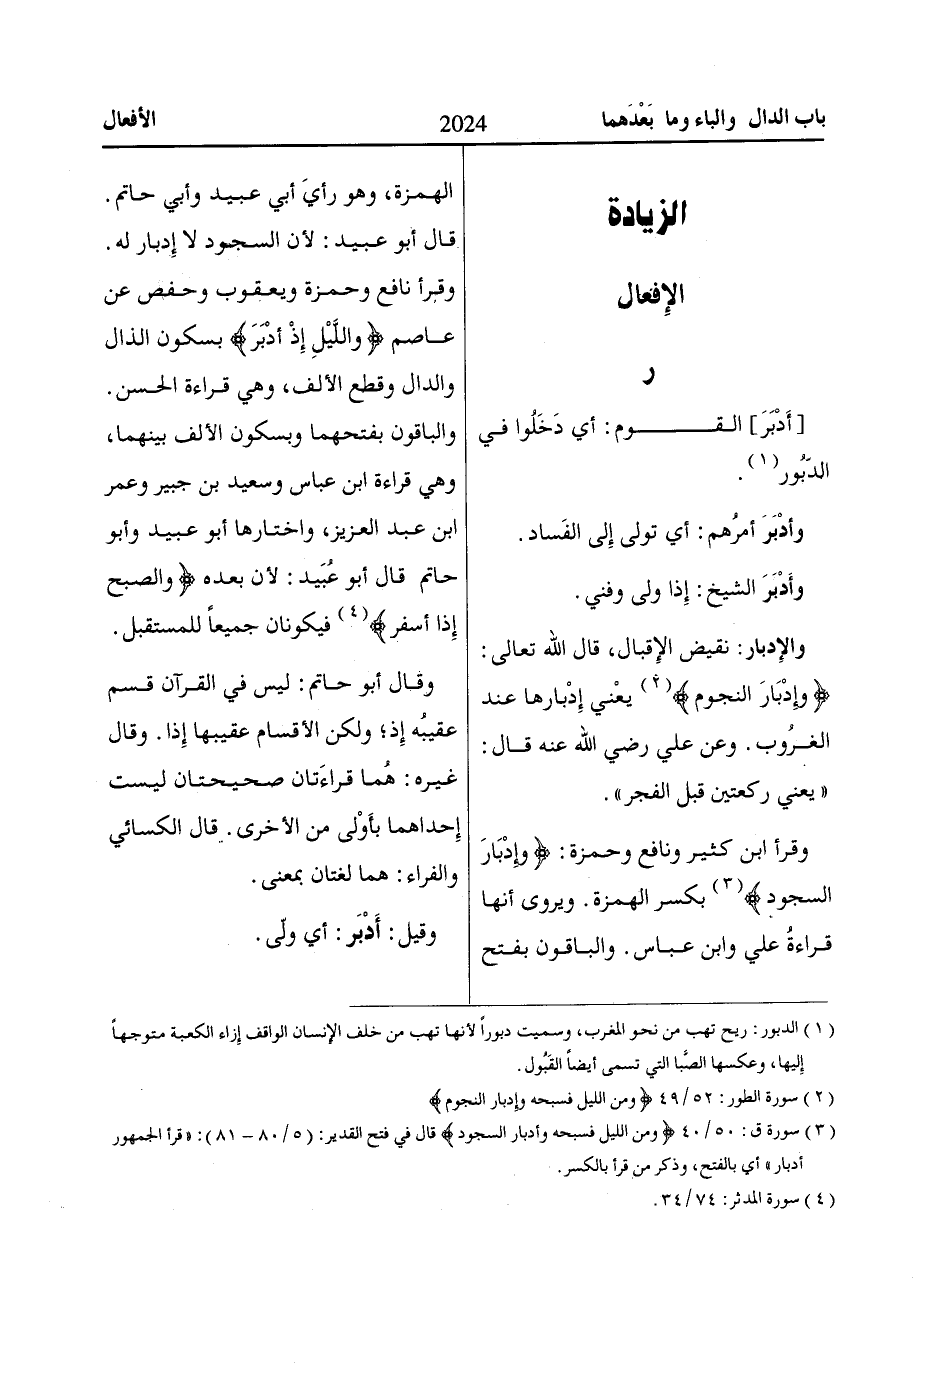 باب الدال والباء وما بَعْدَهما
2024
الأفعال
الزيادة
الإفعال
ر
[أَدْبَرَ] القــوم: أي دَخَلُوا في
الدَّبُور(١).
وأدْبَرَ أمرُهم: أي تولى إلى الفَساد.
وأَدْبَرَ الشيخ: إذا ولى وفني.
والإدبار: نقيض الإقبال، قال الله تعالى:
﴿وإدْبَارَ النجوم﴾(٢) يعْني إدْبارها عند
الغُروب. وعن علي رضي الله عنه قال:
«يعني ركعتين قبل الفجر».
وقرأ ابن كثير ونافع وحمزة: ﴿وإدْبَارَ
السجود﴾(٣) بكسر الهمزة. ويروى أنها
قراءةُ علي وابن عباس. والباقون بفتح
الهمزة، وهو رأيَ أبي عبيد وأبي حاتم.
قال أبو عبيد: لأن السجود لا إدبار له.
وقرأ نافع وحمزة ويعقوب وحفص عن
عاصم ﴿واللَّيْلِ إذْ أدْبَرَ﴾ بسكون الذال
والدال وقطع الألف، وهي قراءة الحسن.
والباقون بفتحهما وبسكون الألف بينهما،
وهي قراءة ابن عباس وسعيد بن جبير وعمر
ابن عبد العزيز، واختارها أبو عبيد وأبو
حاتم قال أبو عُبَيد: لأن بعده ﴿والصبح
إذا أسفر﴾(٤) فيكونان جميعاً للمستقبل.
وقال أبو حاتم: ليس في القرآن قسم
عقيبُه إذ؛ ولكن الأقسام عقيبها إذا. وقال
غيره: هُما قراءَتان صحيحتان ليست
إحداهما بأَوْلى من الأخرى. قال الكسائي
والفراء: هما لغتان بمعنى.
وقيل: أَدْبَر: أي ولّى.
(١) الدبور: ريح تهب من نحو المغرب، وسميت دبوراً لأنها تهب من خلف الإنسان الواقف إزاء الكعبة متوجهاً
إليها، وعكسها الصَّبا التي تسمى أيضاً القَبُول.
(٢) سورة الطور: ٥٢/ ٤٩ ﴿ومن الليل فسبحه وإدبار النجوم﴾
(٣) سورة ق: ٥٠/ ٤٠ ﴿ومن الليل فسبحه وأدبار السجود﴾ قال في فتح القدير: (٥/ ٨٠ – ٨١): «قرأ الجمهور
أدبار» أي بالفتح، وذكر من قرأ بالكسر.
(٤) سورة المدثر: ٧٤/ ٣٤.